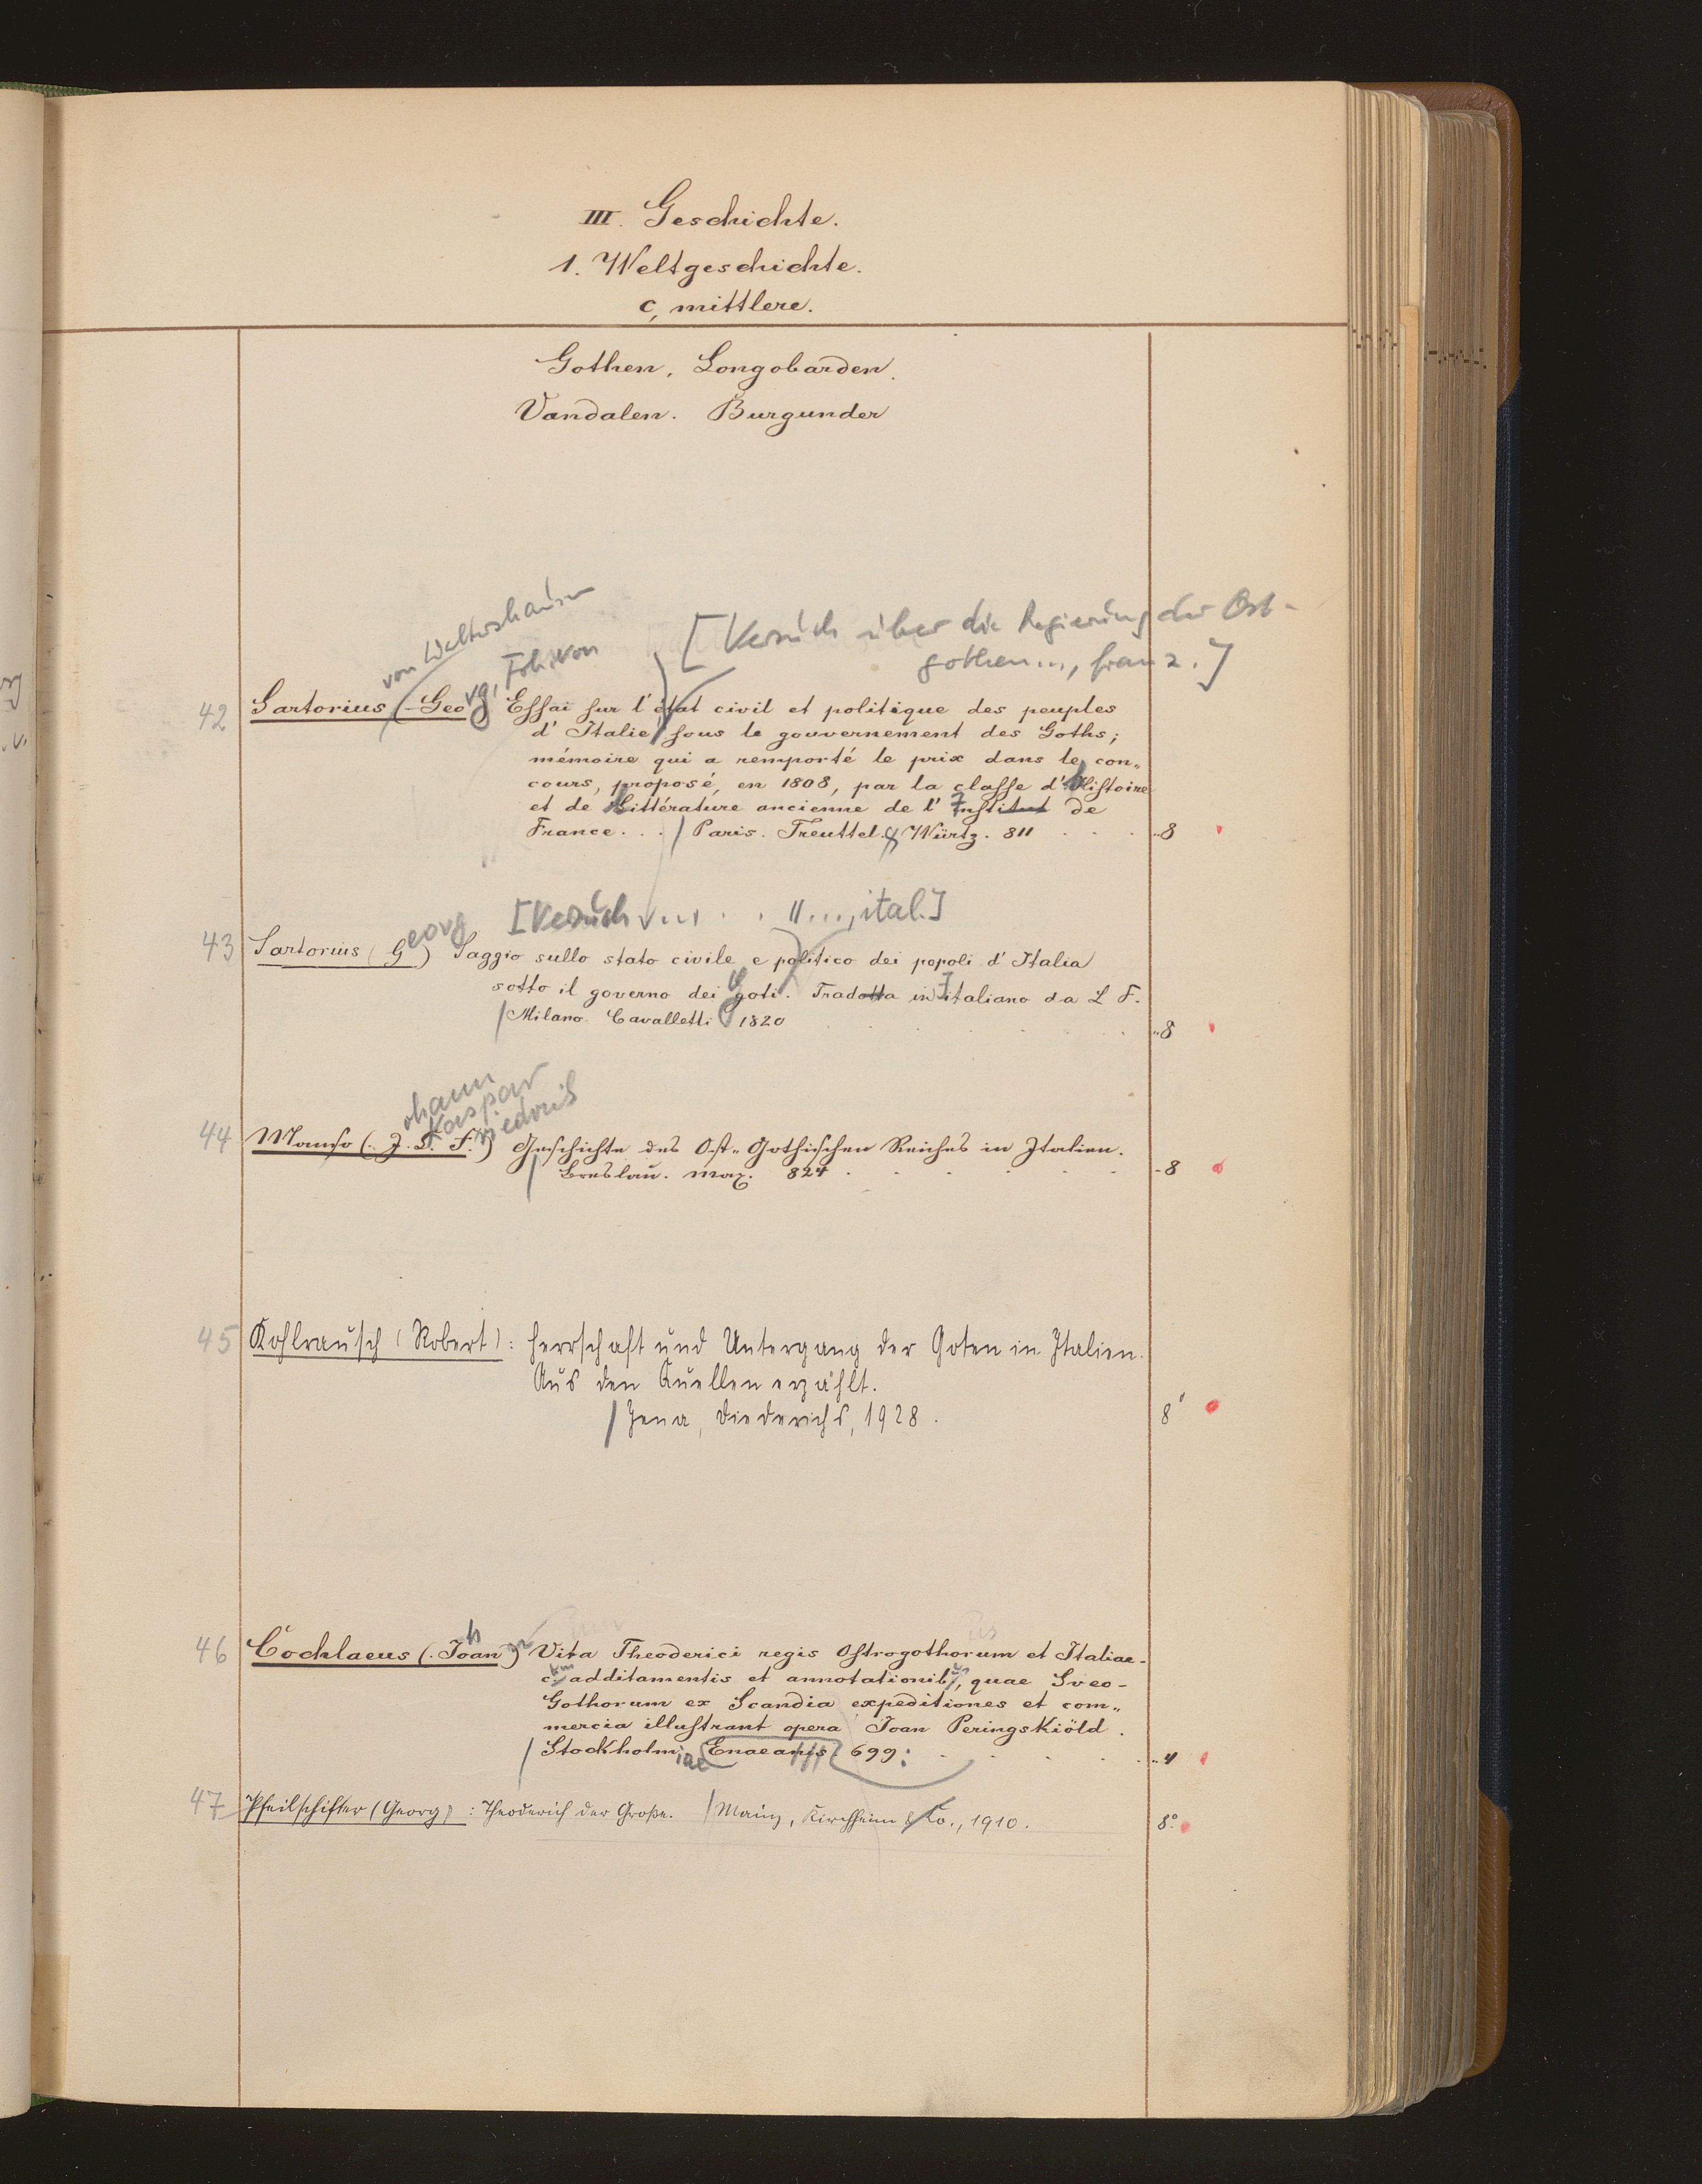 III. Geschichte.
1. Weltgeschichte.
c, mittlere.
Gothen. Longobarden.
Vandalen. Burgunder
von Waltershausen
[Versuch über die Regierung der Ost-
gothen..., franz.]
42 Sartorius (Georg, Frh. von) Essai sur l'état civil et politique des peuples
d'Italie sous le gouvernement des Goths;
mémoire qui a remporté le prix dans le con„
cours, proposé, en 1808, par la classe d'histoire
et de littérature ancienne de l'Institut de
France. . . / Paris. Treuttel & Würtz. 811 . . . ..8
[Versuch ... . . "..., ital.]
43 Sartorius (Georg) Saggio sullo stato civile e politico dei popoli d'Italia
sotto il governo dei goti. Tradotta in Italiano da L F.
/ Milano. Cavalletti 1820 ..8
ohann
Kaspar
riedrich
44 Manso (. J. K. F.) Geschichte des Ost„ Gothischen Reiches in Italien.
/ Breslau. Max. 824 . . . . . . -8
45 Kohlrausch (Robert): Herrschaft und Untergang der Goten in Italien.
Aus den Quellen erzählt.
/ Jena, Diederichs, 1928. 8°
46 Cochlaeus (. Johann) Vita Theoderici regis Ostrogothorum et Italiae.
cum additamentis et annotationibus, quae Sveo-
Gothorum ex Scandia expeditiones et com„
mercia illustrant opera Joan Peringskiöld.
/ Stockholmiae Enaeanis 699: . . . . ..4
47 Pfeilschifter (Georg): Theoderich der Große. / Mainz, Kirchheim & Co., 1910. 8°